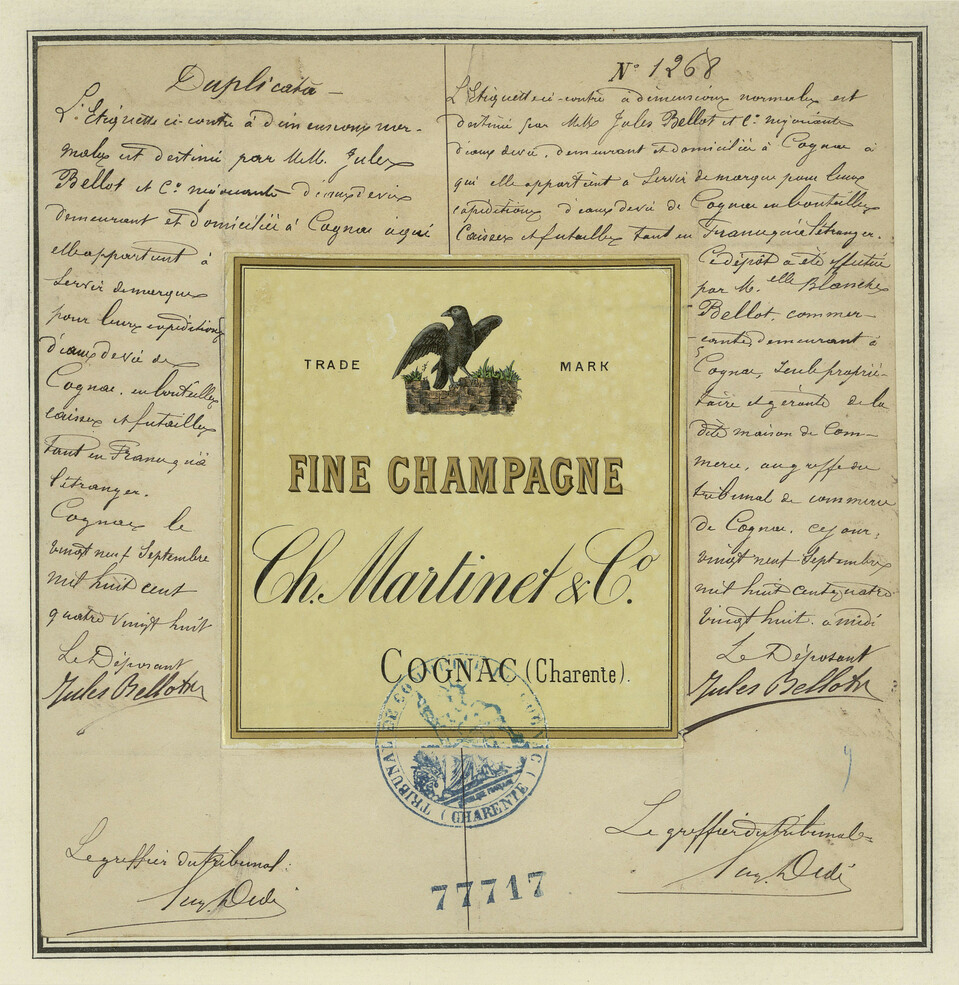 Duplicata
L'Etiquette ci-contre à dimensions nor-
males est destiné par MM. Jules
Bellot et Cº négociants d'eaux de vie
demeurant et domiciliée à Cognac à qui
elle appartient à
servir de marque
pour leurs expéditions
d'eaux de vie de
Cognac, en bouteilles
caisses et futailles
tant en France qu'à
l'étranger.
Cognac le
vingt neuf Septembre
mil huit cent
quatre vingt huit
Le Déposant
Jules Bellot
Le greffier du tribunal
Dedé
Nº 1268
L'Etiquette ci-contre à dimensions normales est
destiné par MM Jules Bellot et Cº négociants
d'eaux de vie, demeurant et domiciliée à Cognac à
qui elle appartient à servir de marque pour leurs
expéditions d'eaux de vie de Cognac en bouteilles
caisses et futailles tant en France qu'à l'étranger.
Ce dépôt a été effectué
par Melle Blanche
Bellot, commer-
cante, demeurant à
Cognac, seule proprié-
taire et gérante de la
dite maison de Com-
merce, au greffe du
tribunal de commerce
de Cognac, ce jour,
vingt neuf Septembre
mil huit cent quatre
vingt huit, à midi
Le Déposant
Jules Bellot
Le greffier du tribunal
Dedé
TRADE MARK
FINE CHAMPAGNE
Ch. Martinet & Cº.
COGNAC (Charente).
TRIBUNAL DE COMMERCE COGNAC (CHARENTE)
77717